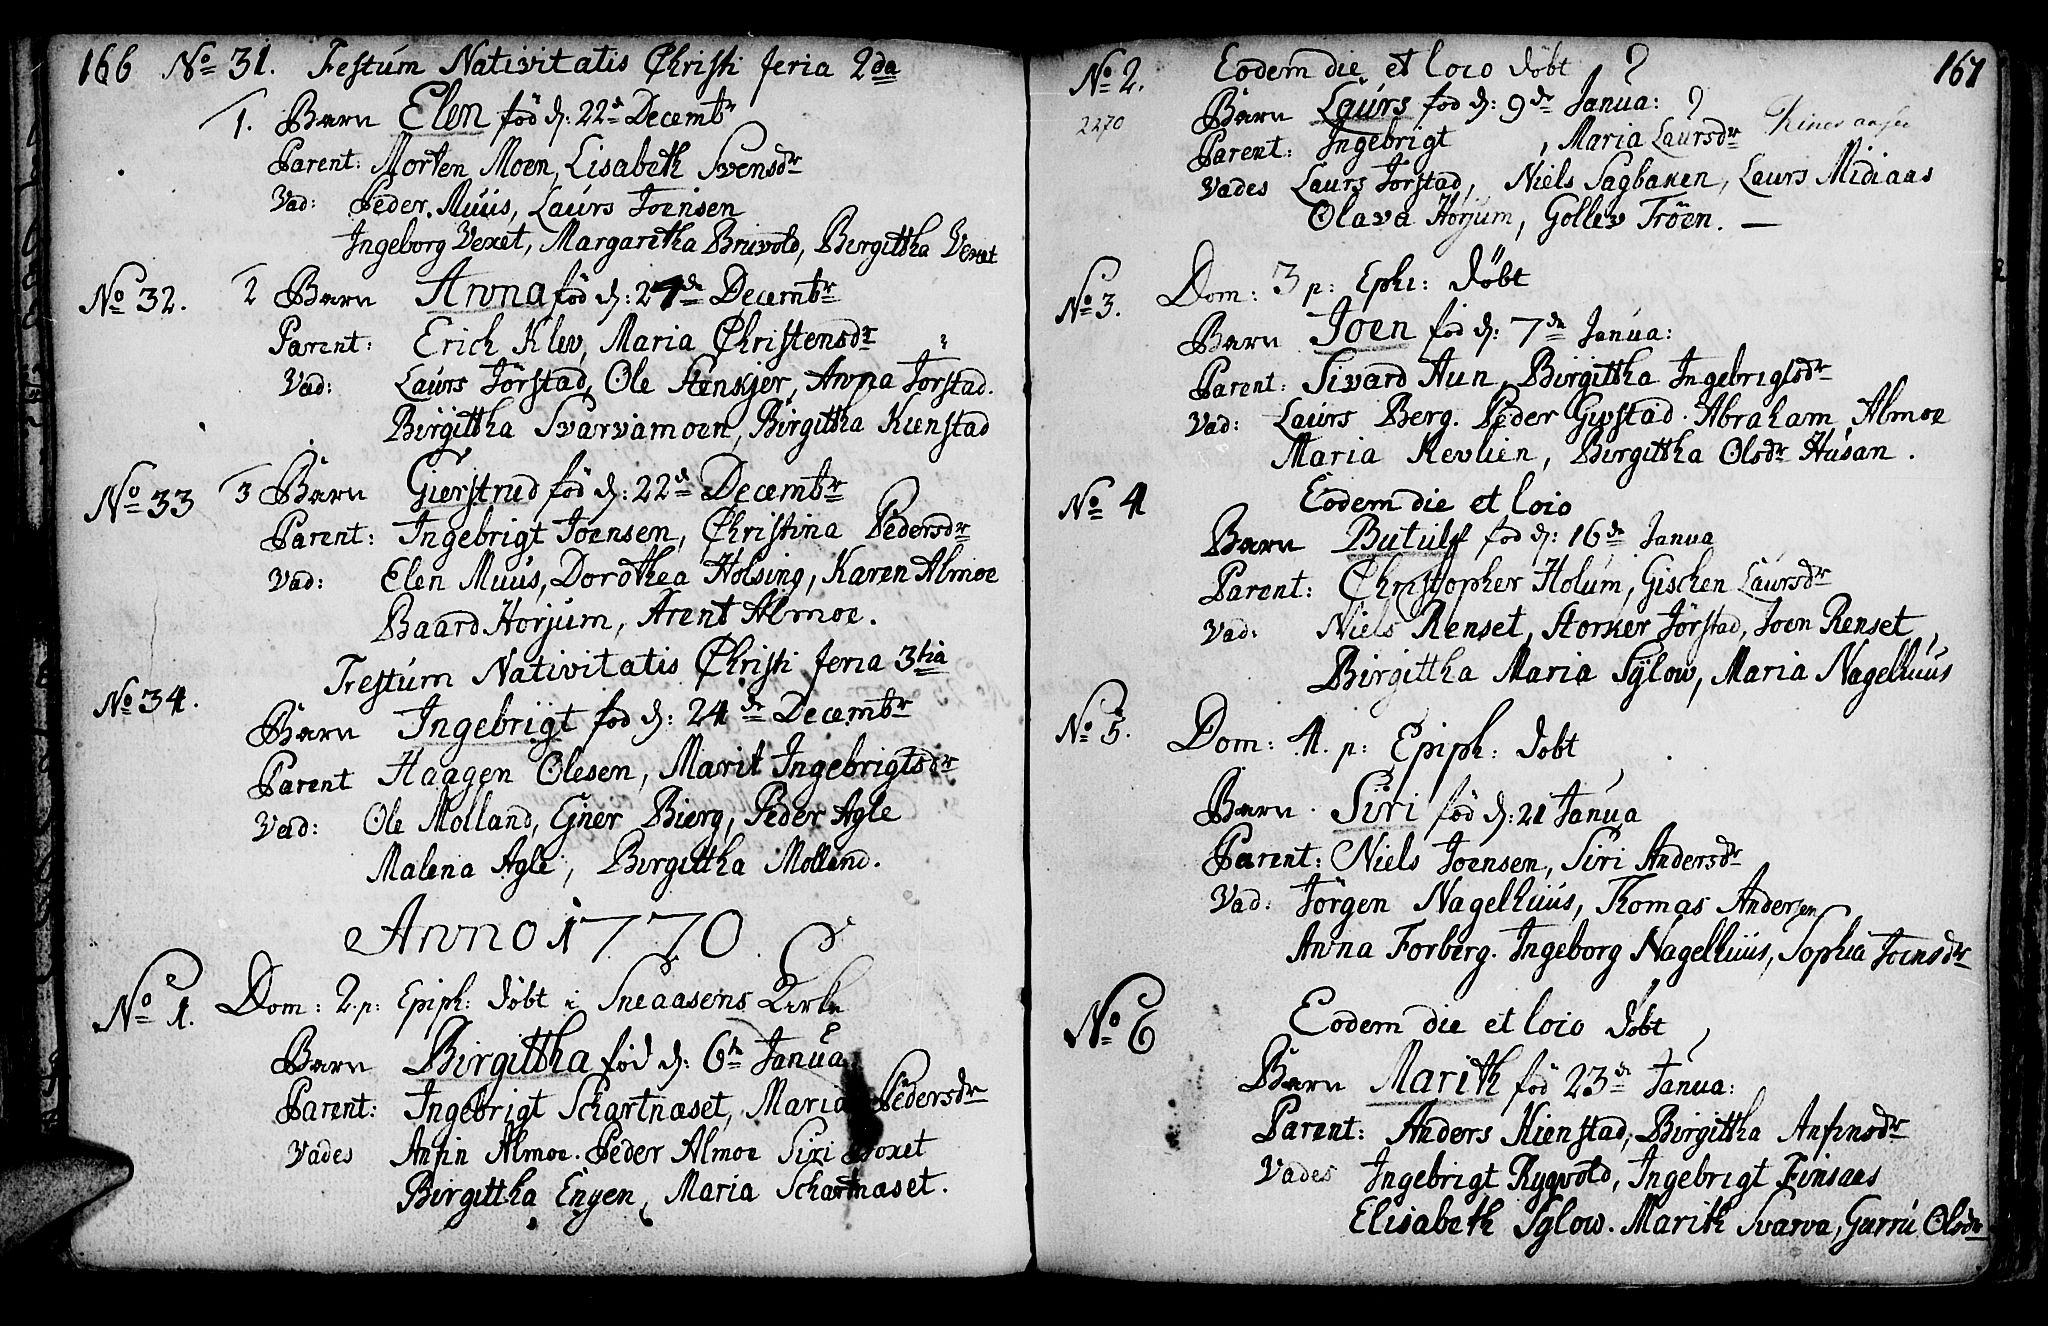 166 No 31. Festum Nativitatis Christi feria 2da
1. Barn Elen fød d: 22de Decembr
Parent: Morten Moen, Lisabeth Svensdr
Vad: Peder Muus, Laurs Joensen
Ingeborg Vexet, Margaretha Bruvold, Birgittha Vexet
No 32. 2 Barn Anna fød d: 27de Decembr
Parent: Erich Klev, Maria Christensdr
Vad: Laurs Jørstad, Ole Stenkjer, Anna Jorstad.
Birgittha Svarvamoen, Birgittha Kienstad
No 33 3 Barn Gierstrud fød d: 22de Decembr
Parent: Ingebrigt Joensen, Christina Pedersdr
Vad: Elen Muus, Dorothea Holsing, Karen Almoe
Baard Horjum, Arent Almoe.
Festum Nativitatis Christi feria 3tia
No 34. Barn Ingebrigt fød d: 24de Decembr
Parent Haagen Olesen, Marit Ingebrigtsdr
Vad: Ole Molland, Ejner Bierg, Peder Agle
Malena Agle, Birgittha Molland.
Anno 1770
No 1. Dom: 2. p: Epiph: døbt i Sneaasens Kirke
Barn Birgittha fød d: 6te Janua
Parent: Ingebrigt Schartnæset, Maria Pedersdr
Vades Anfin Almoe. Peder Almoe Siri
Birgittha Engen, Maria Schartnæset.
167
No 2. Eodem die et loco døbt ?
Barn Laurs fød d: 9de Janua: ?
2270
Parent: Ingebrigt , Maria Laursdr
Vades Laurs Jørstad, Niels Sagbaken, Laurs Midiaas
Olava Horjum, Gollev Trøen. —
No 3. Dom: 3 p: Eph: døbt
Barn Joen fød d: 7de Janua:
Parent: Sivard Aun, Birgittha Ingebrigtsdr
Vad: Laurs Berg. Peder Gifstad. Abraham Almoe
Maria Kevlien, Birgittha Olsdr Husan.
No 4 Eodem die et loco
Barn Butulf fød d: 16de Janua
Parent: Christopher Holum, Gischen Laursdr
Vad: Niels Renset, Storker Jørstad, Joen Renset,
Birgittha Maria Sylow, Maria Nagelhuus
No 5. Dom: 4. p: Epiph: døbt
Barn Siri fød d: 21 Janua
Parent: Niels Joensen, Siri Andersdr
Vad: Jørgen Nagelhuus, Thomas Andersen
Anna Forberg. Ingeborg Nagelhuus, Sophia Joensdr
No 6 Eodem die et loco døbt
Barn Marith fød 23de Janua:
Parent: Anders Kienstad, Birgittha Anfinsdr
Vades Ingebrigt Rygvold, Ingebrigt Finsaas
Elisabeth Sylow. Marith Svarva, Gurru Olsdr